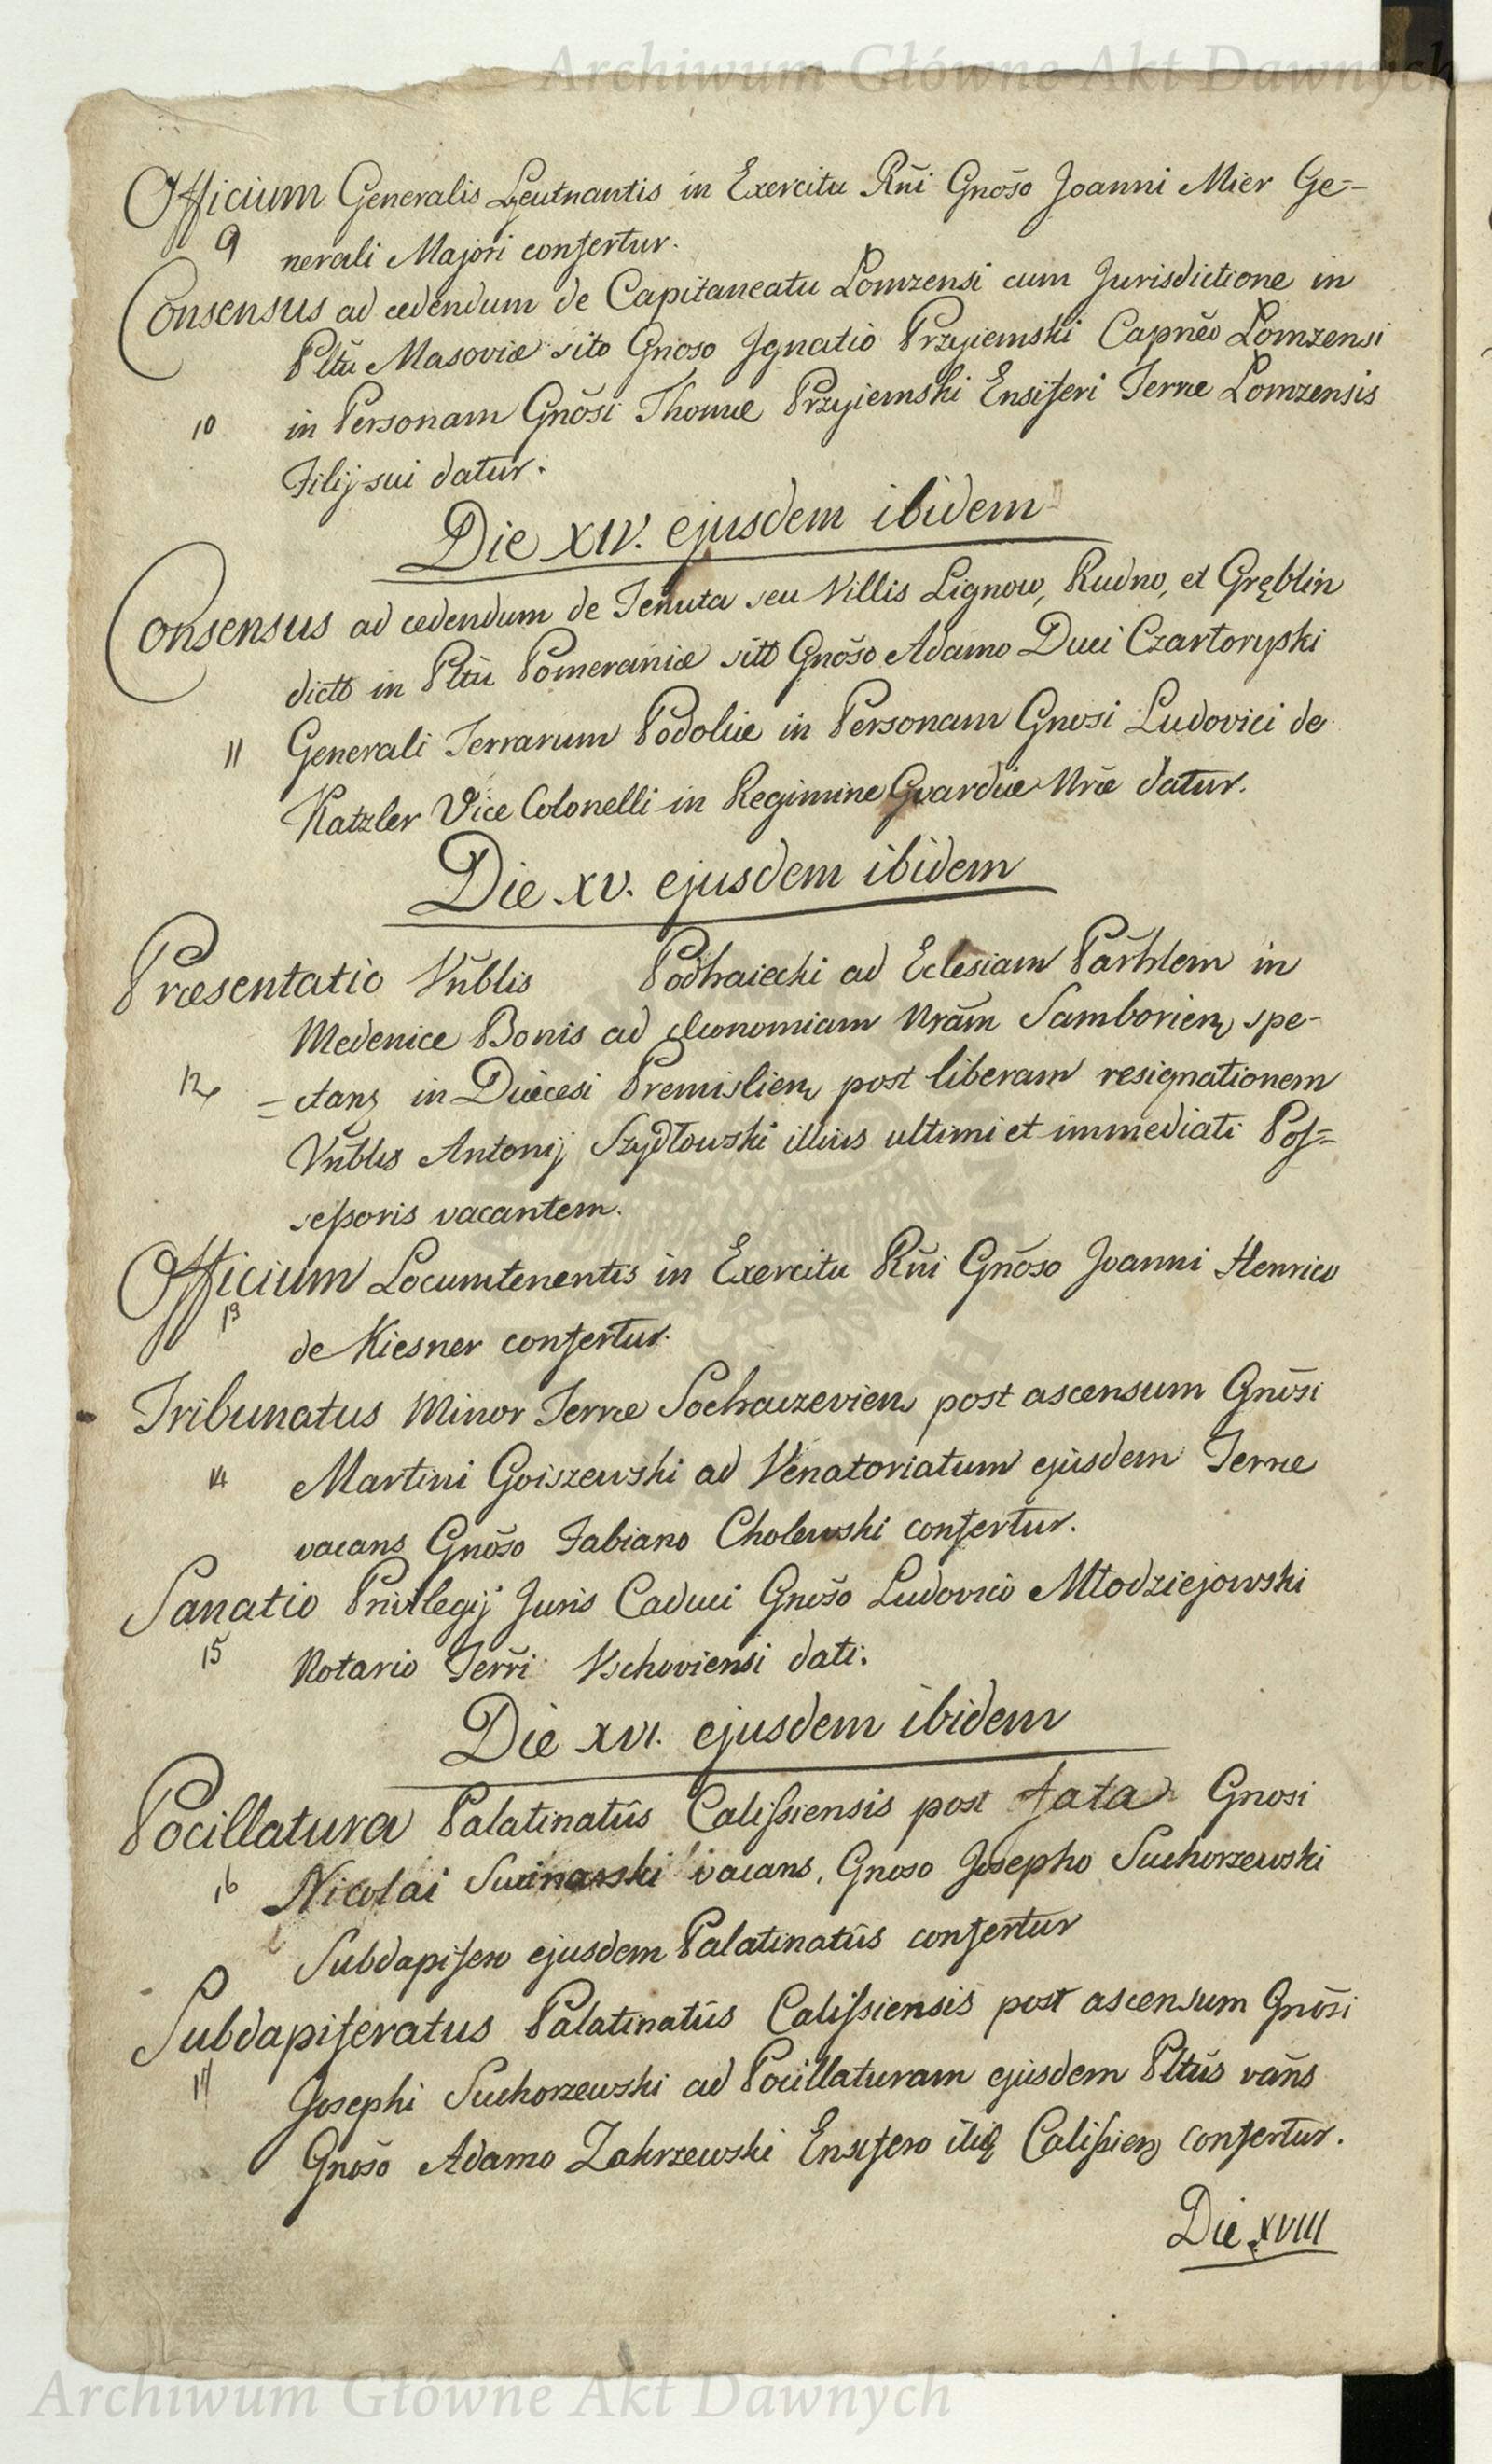 Archiwum Główne Akt Dawnych
Officium Generalis Leutnantis in Exercitu Rñi Gnõso Joanni Mier Ge=
9 nerali Majori confertur.
Consensus ad cedendum de Capitaneatu Lomzensi cum Jurisdictione in
Pltũ Masoviæ sito Gnoso Ignatio Przyiemski Capnẽo Lomzensi
10 in Personam Gnõsi Thomæ Przyiemski Ensiferi Terræ Lomzensis
Filij sui datur.
Die XIV. ejusdem ibidem
Consensus ad cedendum de Tenuta seu Villis Lignow, Rudno, et Gręblin
dicto in Pltũ Pomeraniæ sito Gnõso Adamo Duci Czartoryski
11 Generali Terrarum Podoliæ in Personam Gnosi Ludovici de
Katzler Vice Colonelli in Regimine Gvardiæ Nræ datur.
Die XV. ejusdem ibidem
Præsentatio Vñblis Podhaiecki ad Eclesiam Parhlem in
Medenice Bonis ad Œconomiam Nrãm Samborien, spe-
12 =ctans in Diæcesi Premislien, post liberam resignationem
Vñblis Antonij Szydłowski illius ultimi et immediati Pos=
sessoris vacantem.
Officium Locumtenentis in Exercitu Rñi Gnõso Joanni Henrico
13 de Kiesner confertur.
Tribunatus Minor Terræ Sochaczevien, post ascensum Gnõsi
14 Martini Goiszewski ad Venatoriatum ejusdem Terræ
vacans Gnõso Fabiano Cholewski confertur.
Sanatio Privilegij Juris Caduci Gnõso Ludovico Młodziejowski
15 Notario Terri Vschoviensi dati.
Die XVI. ejusdem ibidem
Pocillatura Palatinatûs Calissiensis post fata Gnosi
16 Nicolai Swinarski vacans, Gnoso Josepho Suchorzewski
Subdapifero ejusdem Palatinatûs confertur
Subdapiferatus Palatinatûs Calissiensis post ascensum Gnõsi
17 Josephi Suchorzewski ad Pocillaturam ejusdem Pltũs vañs
Gnõso Adamo Zakrzewski Ensifero Calissien, confertur.
Die XVIII
Archiwum Główne Akt Dawnych